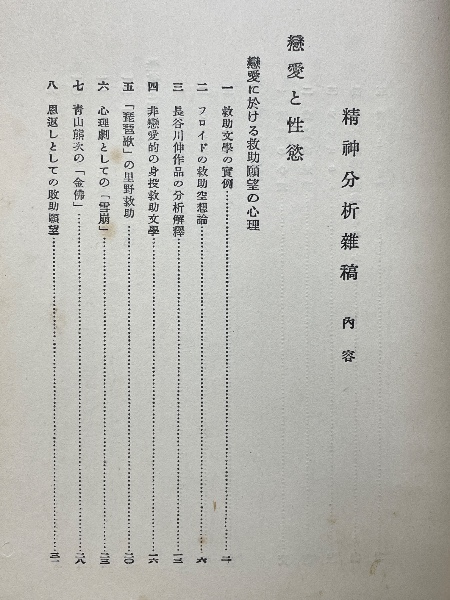 精神分析雜稿 內容
戀愛と性慾
戀愛に於ける救助願望の心理
一 救助文學の實例……………二
二 フロイドの救助空想論……………六
三 長谷川伸作品の分析解釋……………一三
四 非戀愛的の身投救助文學……………一六
五 「琵琶歌」の里野救助……………二〇
六 心理劇としての「雪崩」……………二三
七 靑山熊次の「金佛」……………二八
八 恩返しとしての救助願望……………三二